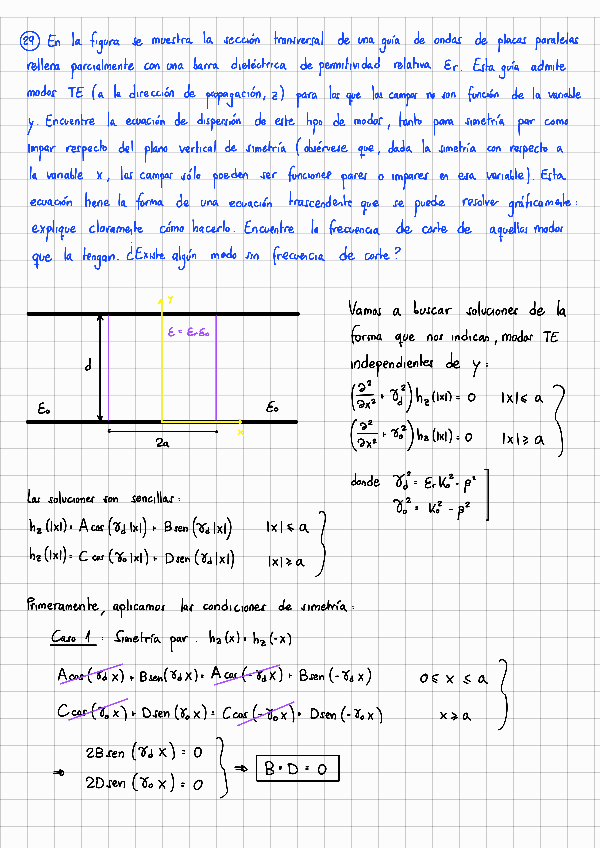 29 En la figura se muestra la sección transversal de una guía de ondas de placas paralelas
rellena parcialmente con una barra dieléctrica de permitividad relativa εr. Esta guía admite
modos TE (a la dirección de propagación, z) para los que los campos no son función de la variable
y. Encuentre la ecuación de dispersión de este tipo de modos, tanto para simetría par como
impar respecto del plano vertical de simetría (obsérvese que, dada la simetría con respecto a
la variable x, los campos sólo pueden ser funciones pares o impares en esa variable). Esta
ecuación tiene la forma de una ecuación trascendente que se puede resolver gráficamente:
explique claramente cómo hacerlo. Encuentre la frecuencia de corte de aquellos modos
que la tengan. ¿Existe algún modo sin frecuencia de corte?
Y
ε = εrε0
d
ε0
ε0
x
2a
Vamos a buscar soluciones de la
forma que nos indican, modos TE
independientes de y:
(∂²/∂x² + γd²) hz(|x|) = 0 |x| ≤ a
(∂²/∂x² + γ0²) hz(|x|) = 0 |x| ≥ a
donde γd² = εr k0² - β²
γ0² = k0² - β²
Las soluciones son sencillas:
hz(|x|) = A cos(γd|x|) + B sen(γd|x|) |x| ≤ a
hz(|x|) = C cos(γ0|x|) + D sen(γd|x|) |x| ≥ a
Primeramente, aplicamos las condiciones de simetría:
Caso 1: Simetría par. hz(x) = hz(-x)
A cos(γd x) + B sen(γd x) = A cos(-γd x) + B sen(-γd x) 0 ≤ x ≤ a
C cos(γ0 x) + D sen(γ0 x) = C cos(-γ0 x) + D sen(-γ0 x) x ≥ a
⇒ 2B sen(γd x) = 0
2D sen(γ0 x) = 0 ⇒ B = D = 0